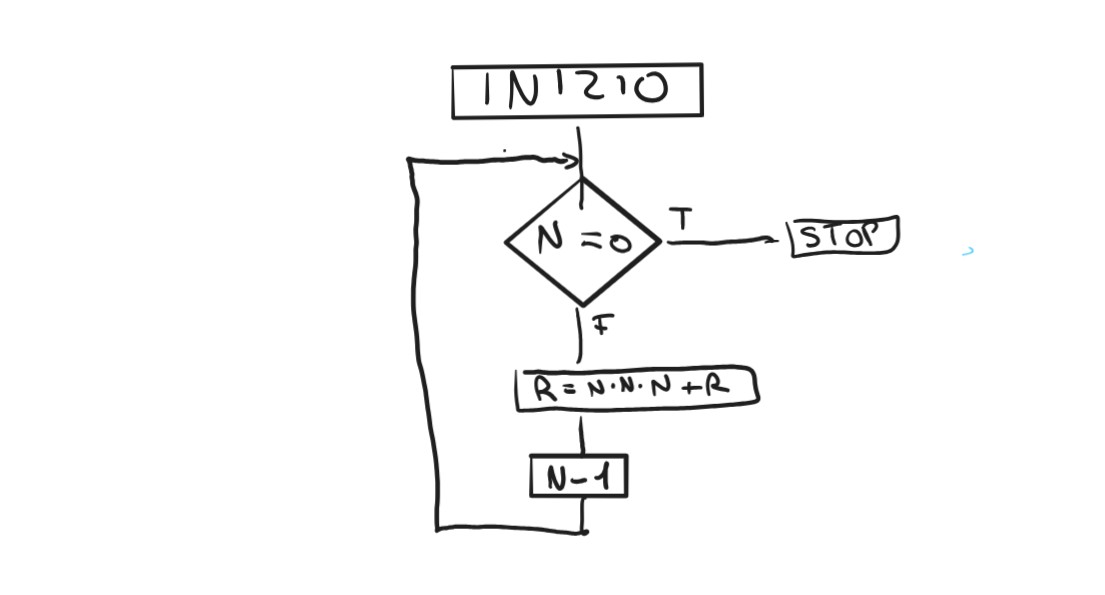 INIZIO
N = 0
T
STOP
F
R = N·N·N + R
N-1